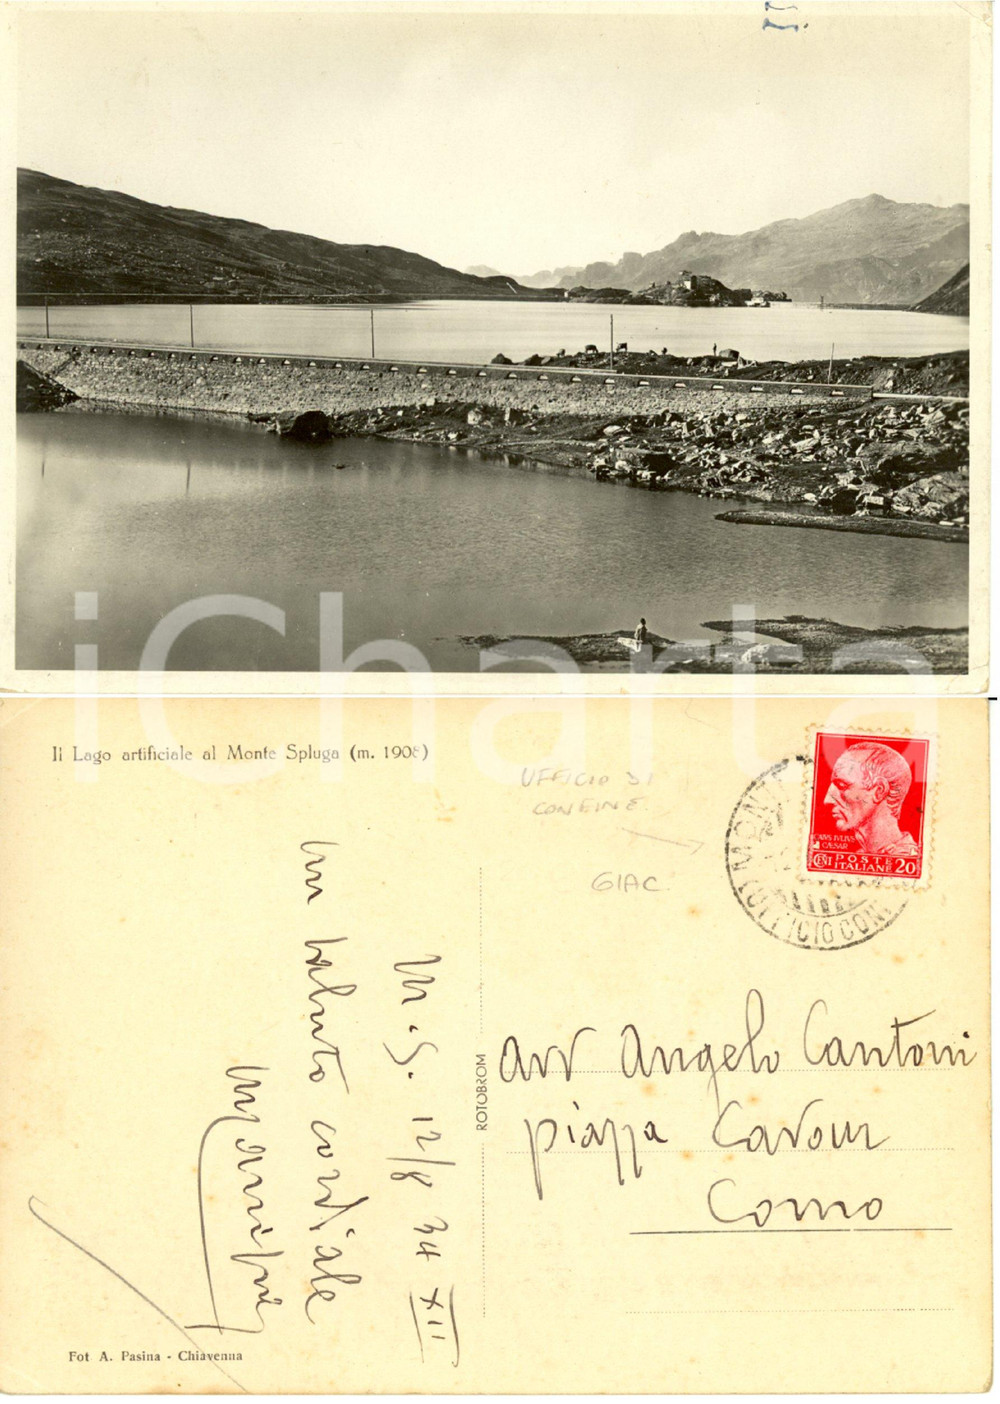 iCharta
Il Lago artificiale al Monte Spluga (m. 1908)
UFFICIO DI
CONFINE
GIAC.
CAIVS IVLIVS
CAESAR
CENT. POSTE ITALIANE 20
MONTE
UFFICIO CONF
M. S. 12/8 34 XII
un saluto cordiale
ROTOBROM
Avv Angelo Cantoni
piazza Cavour
Como
Fot A. Pasina - Chiavenna